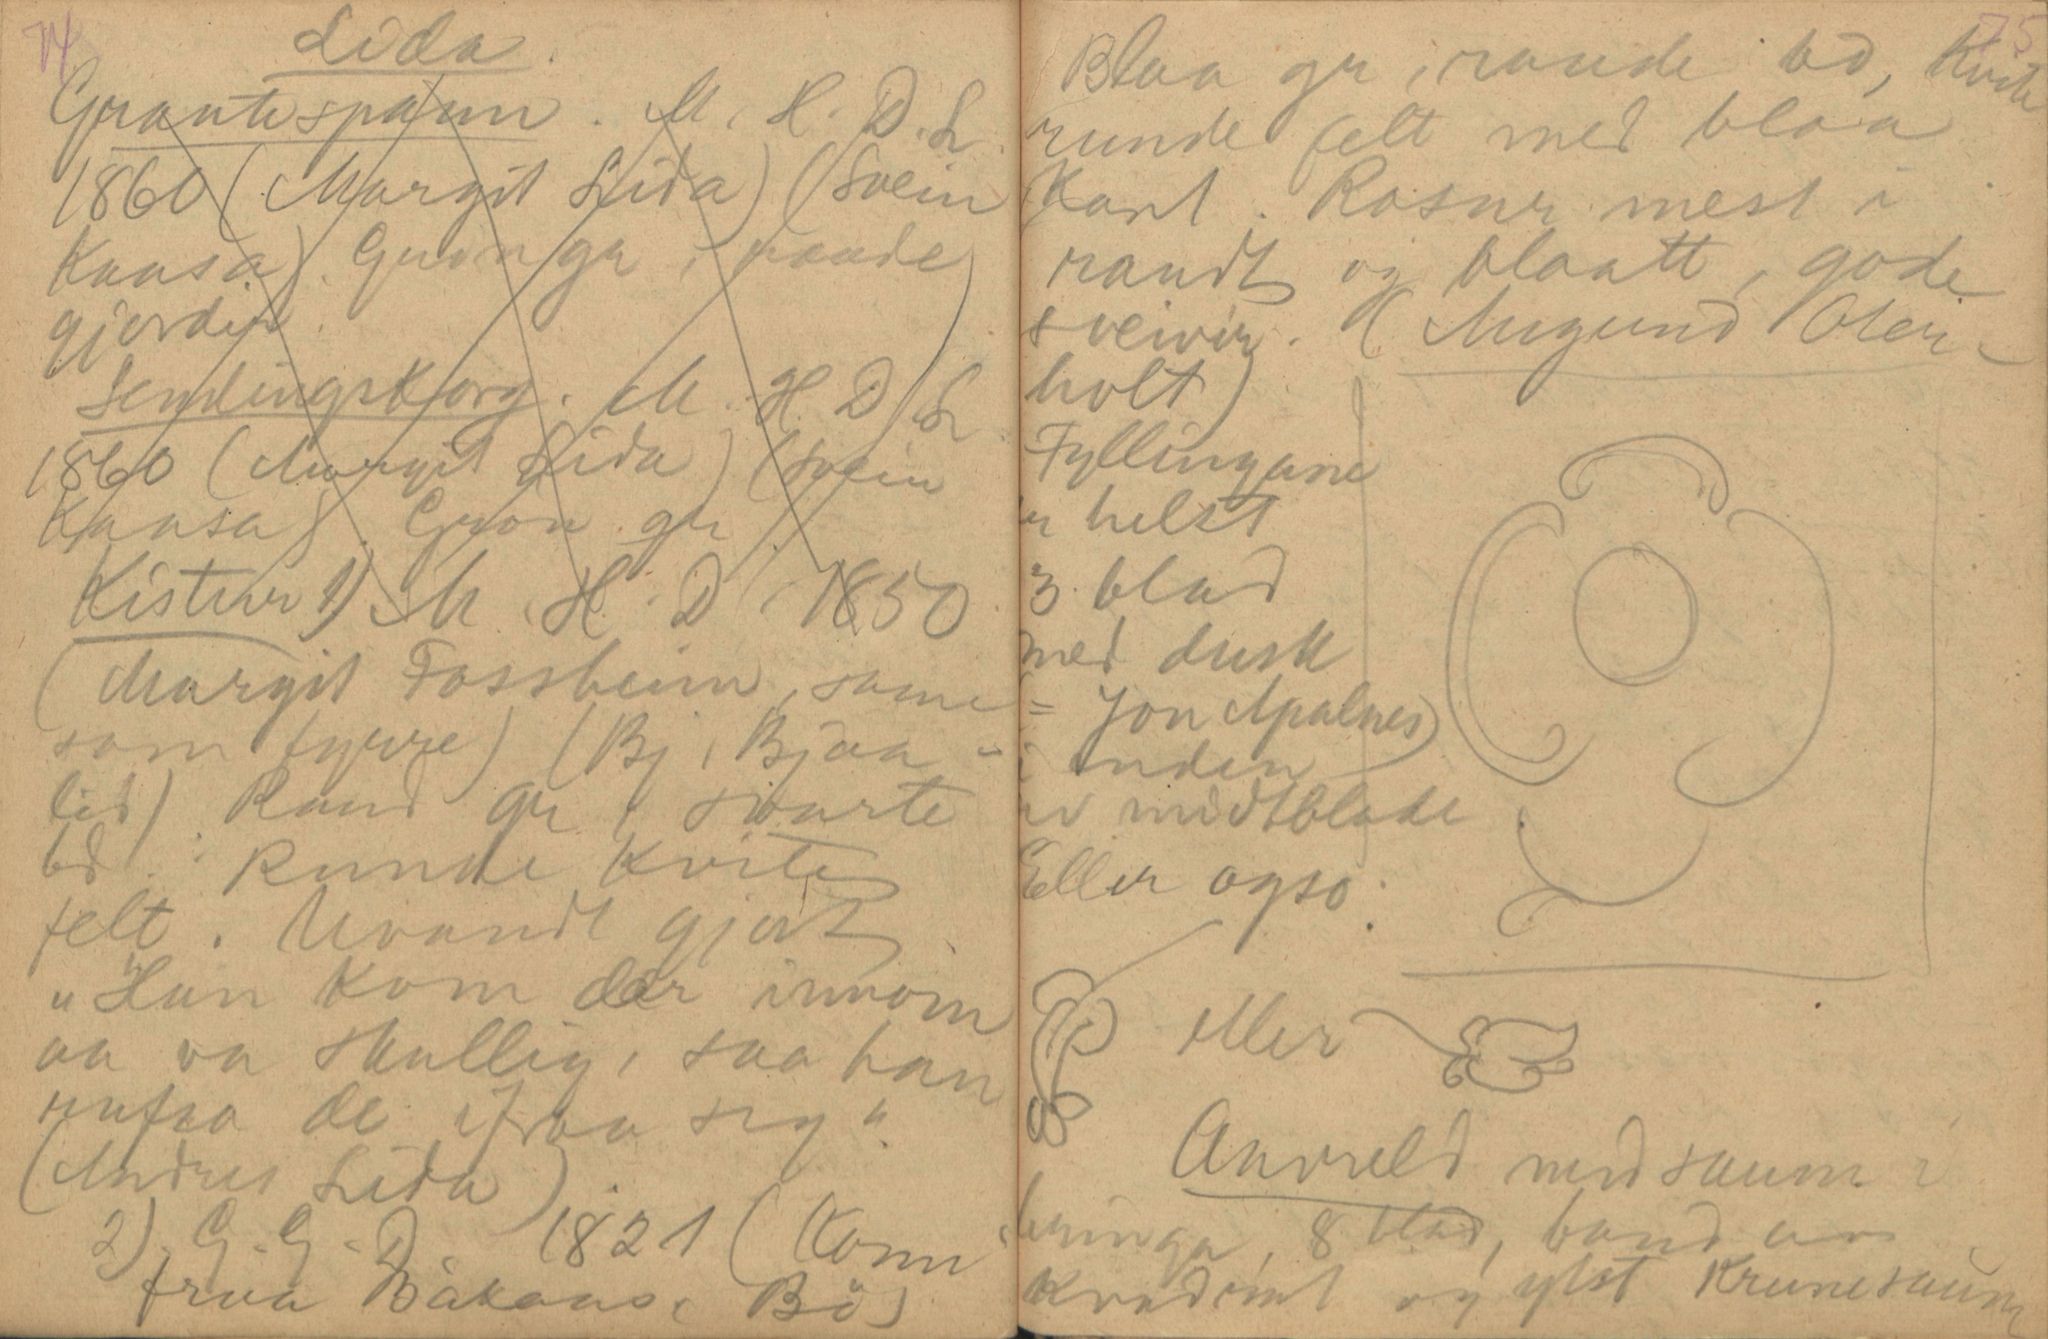 74
Lida.
Grautespann. M. H. D. L.
1860 (Margit Lida) (Svein
Kaasa). Grøn gr, raude
gjordir.
Sendingskorg. M. H. D. L.
1860 (Margit Lida) (Svein
Kaasa). Grøn gr.
Kistur 1) M. H. D. 1850
(Margit Fossheim, same
som fyrre) (Bj. Bjaa-
lid). Raud gr, svarte
bd. Runde kvite
felt. Uvandt gjort
"Han kom der innom
aa va skullig, saa han
rufsa de ifraa seg".
(Andres Lida).
2) G. G. D. 1821 (Kom
fraa Bakaas, Bø)
75
Blaa gr, raude bd, kvite
runde felt med blaa
kant. Rosur mest i
raudt og blaatt, gode
sveivir. (Aagund Oter-
holt)
Fyllingane
er helst
3 blad
med dusk
(= Jon Apalnes)
i enden
av midtblade
Eller ogso:
eller
Anveld med saum i
bringa, 8 blad, band um
kvadrat og ytst krunesaum